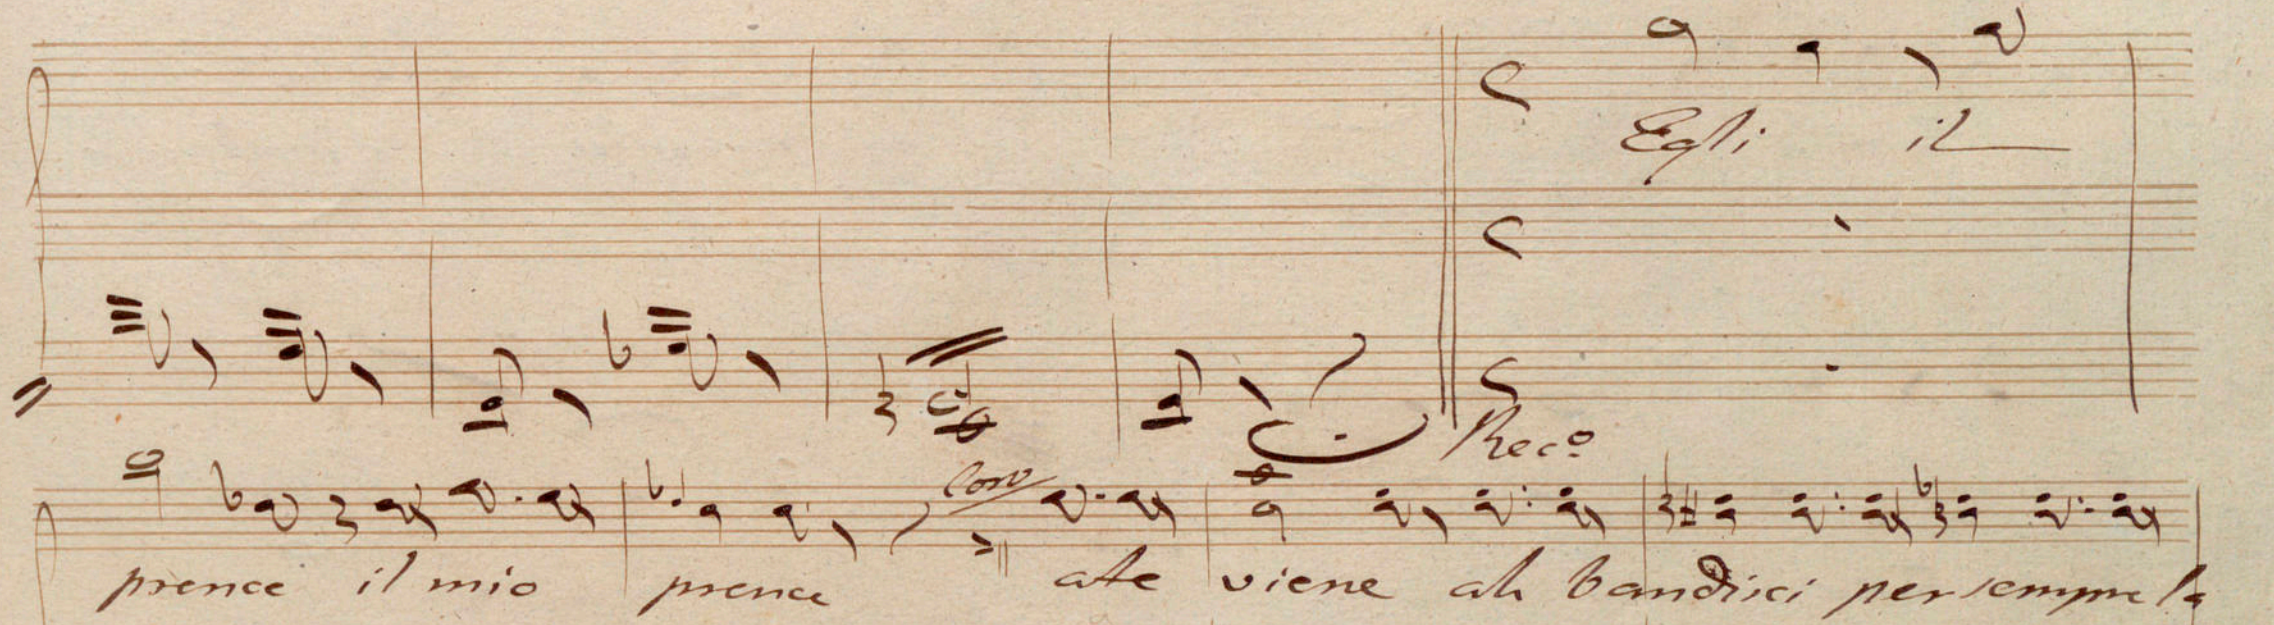 Egli il
Reco
Coro
prence il mio prence a te viene ah bandisci per sempre la